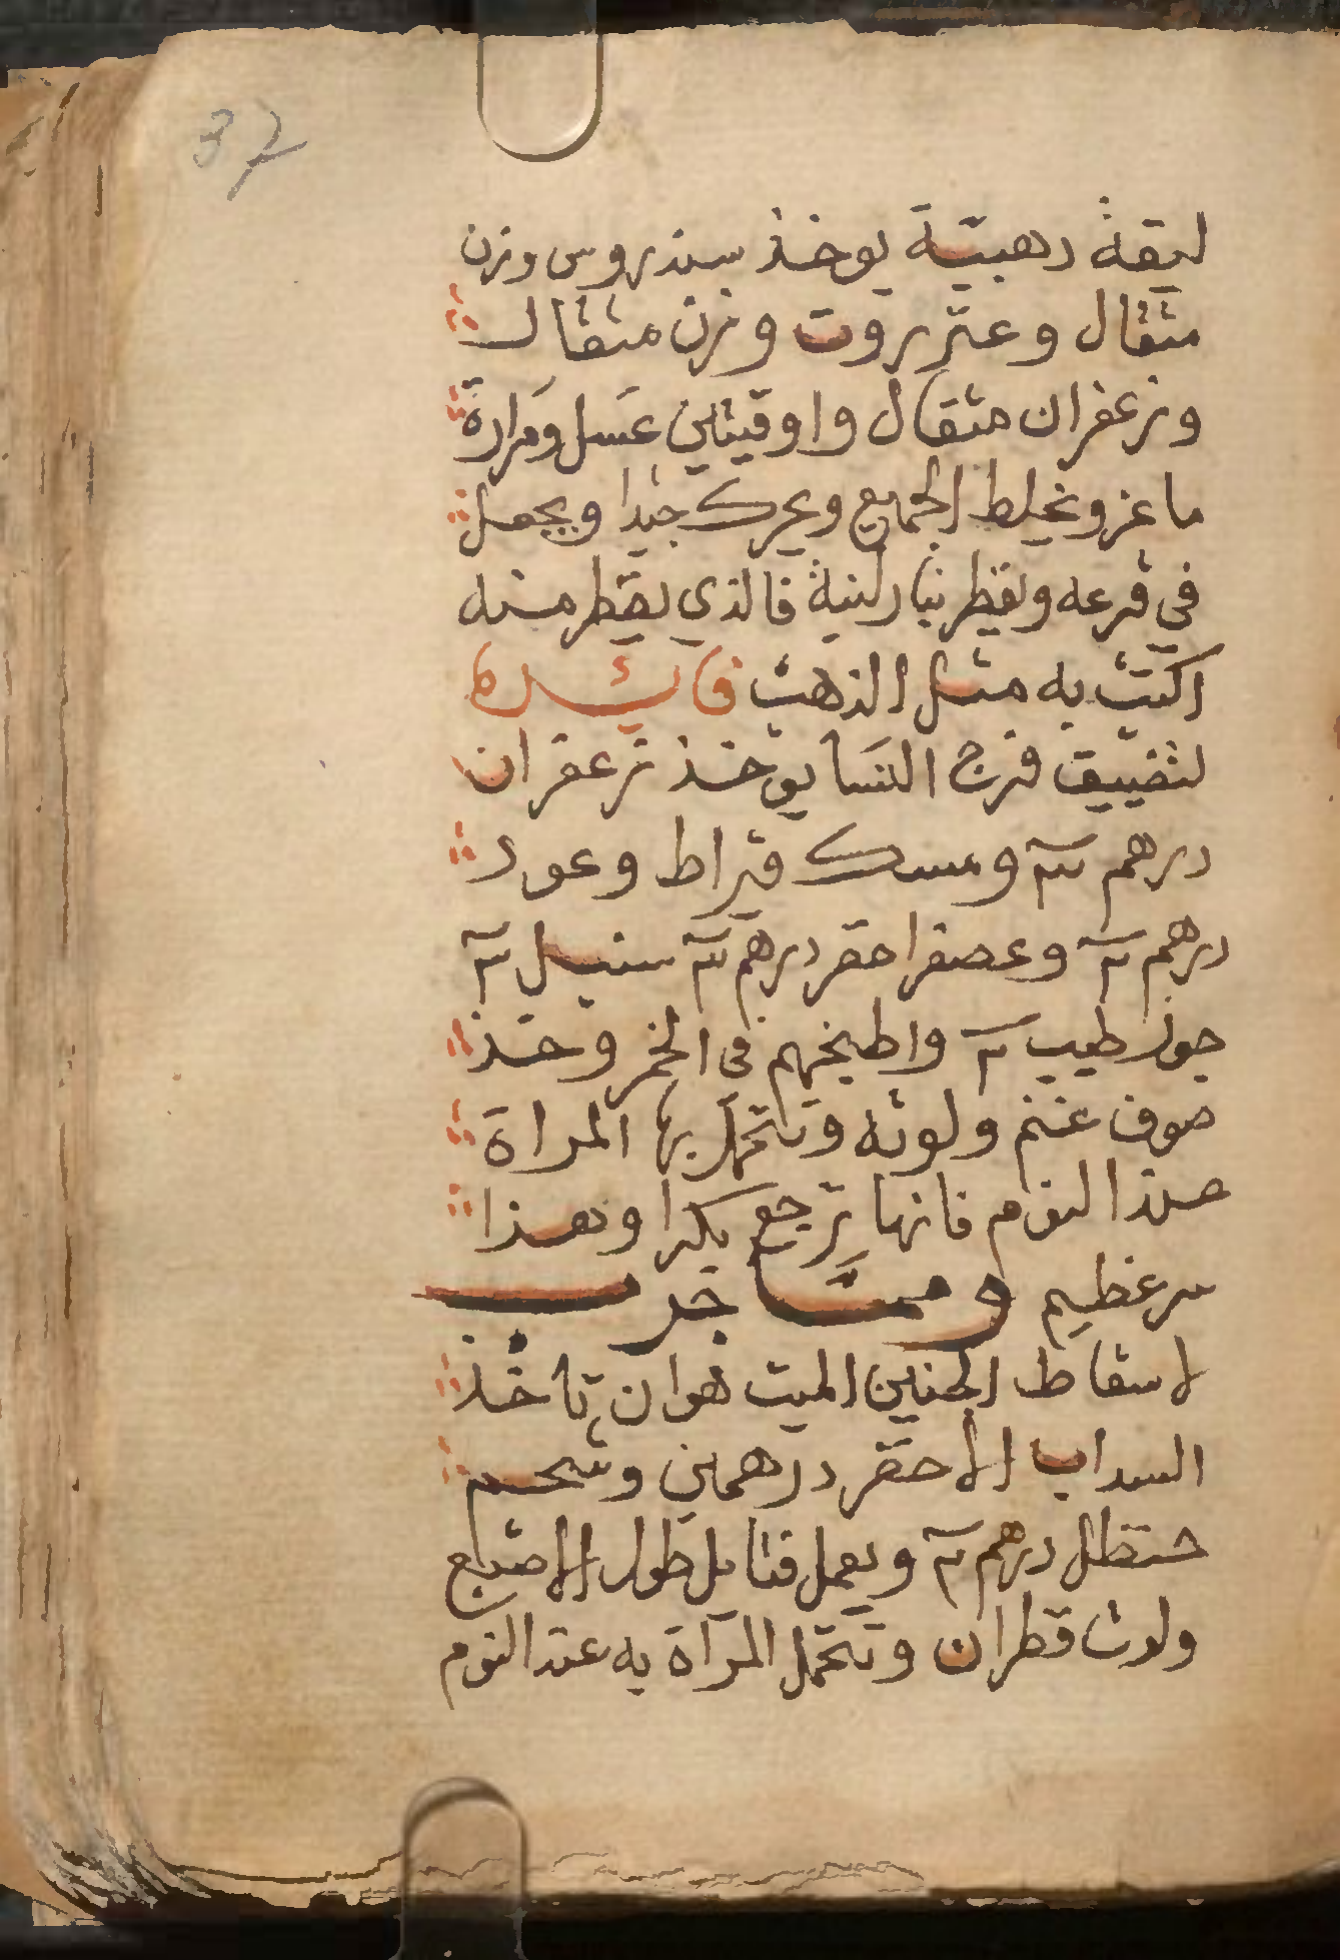 37
ليقة دهبية يوخذ سندروس وزن
مثقال وعنزروت وزن مثقال
وزعفران مثقال واوقيتين عسل ومرارة
ماعز ويخلط الجميع ويحرك جيدا ويجعل
في قرعه ويقطر بنار لينة فالذي يقطر منه
اكتب به مثل الذهب فائدة
لتضييق فرج النسا يوخذ زعفران
درهم ومسك قيراط وعود
درهم وعصفر احمر درهم سنبل
جوز طيب واطبخهم في الخمر وخذ
صوف غنم ولوثه وتتحمل بها المراة
عند النوم فانها ترجع بكرا وهذا
سر عظيم ومما جرب
لاسقاط الجنين الميت هو ان تاخذ
السداب الاحمر درهمين وشحم
حنظل درهم ويعمل فتايل طول الاصبع
ولوث قطران وتتحمل المرآة به عند النوم